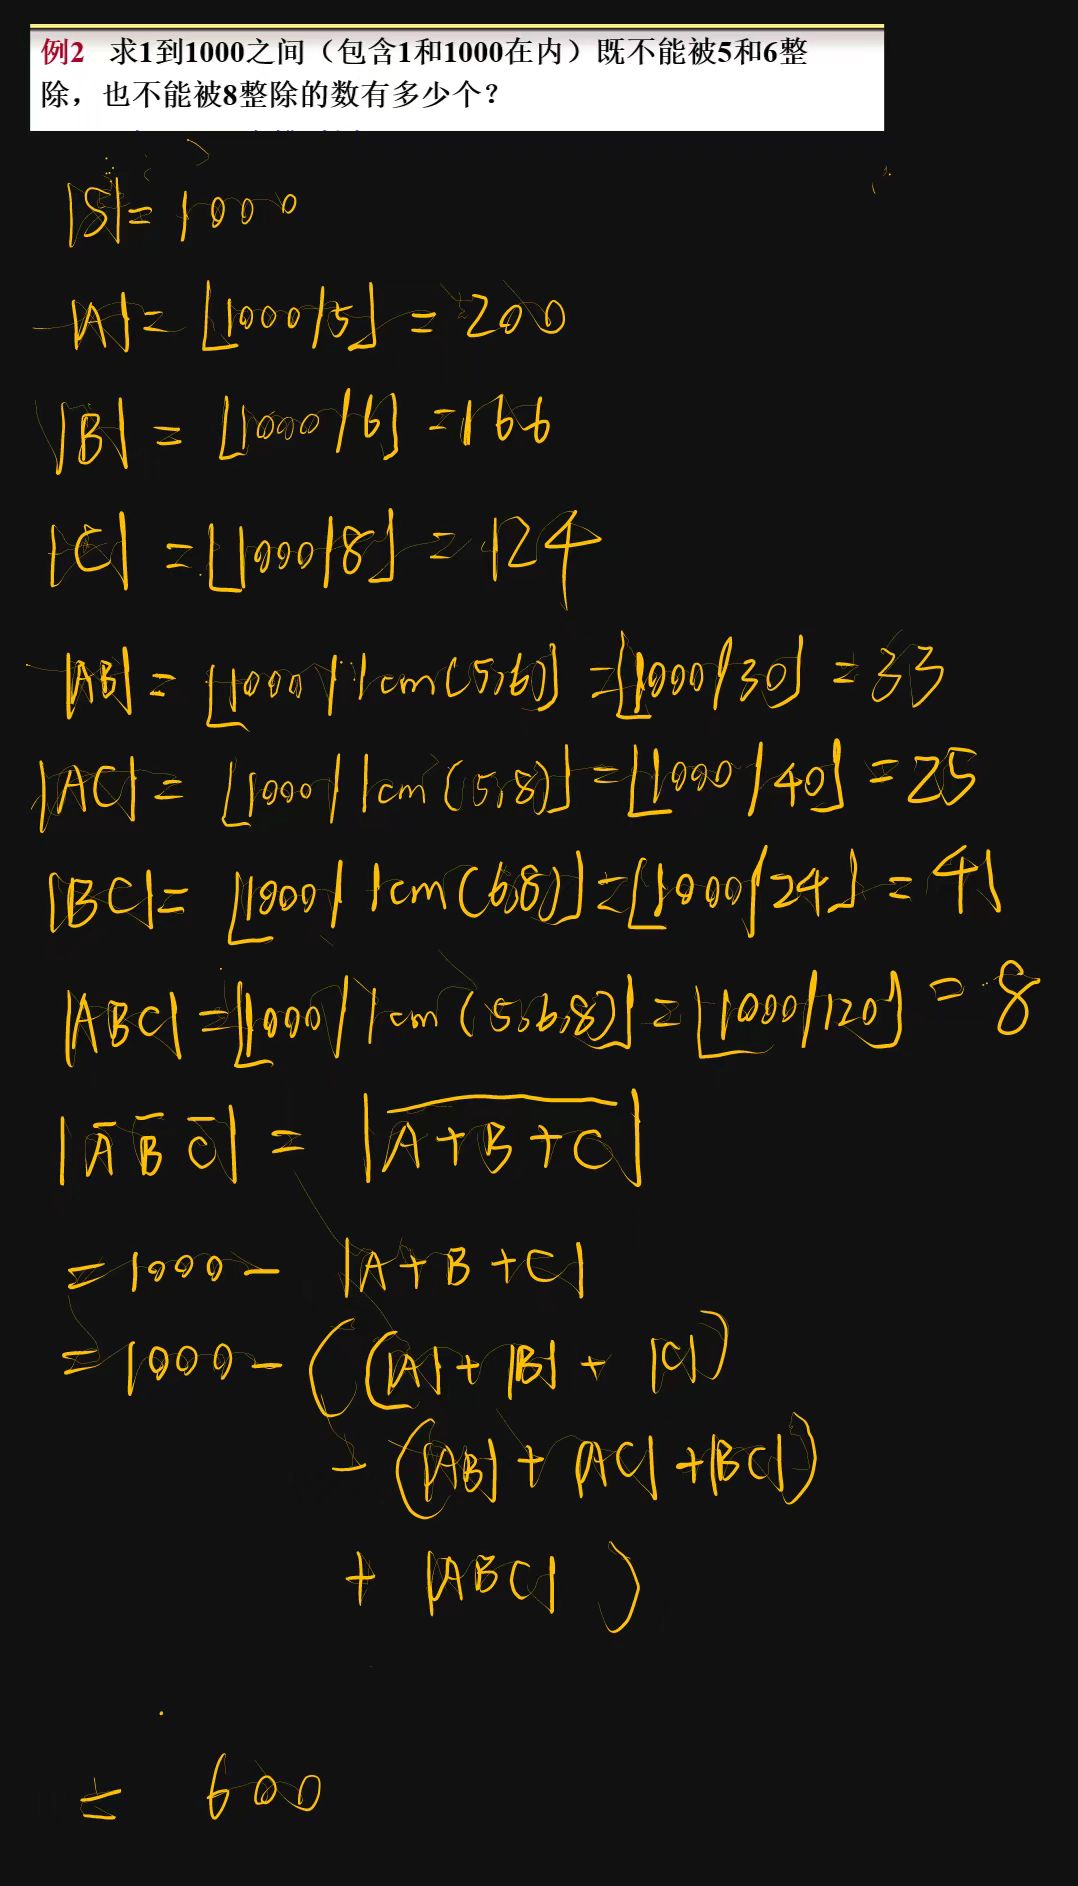 例2 求1到1000之间（包含1和1000在内）既不能被5和6整
除，也不能被8整除的数有多少个？
|S|=1000
|A|=⌊1000/5⌋=200
|B|=⌊1000/6⌋=166
|C|=⌊1000/8⌋=124
|AB|=⌊1000/lcm(5,6)⌋=⌊1000/30⌋=33
|AC|=⌊1000/lcm(5,8)⌋=⌊1000/40⌋=25
|BC|=⌊1000/lcm(6,8)⌋=⌊1000/24⌋=41
|ABC|=⌊1000/lcm(5,6,8)⌋=⌊1000/120⌋=8
|A̅ B̅ C̅|=|A̅+̅B̅+̅C̅|
=1000-|A+B+C|
=1000-((|A|+|B|+|C|)
-(|AB|+|AC|+|BC|)
+|ABC|)
=600